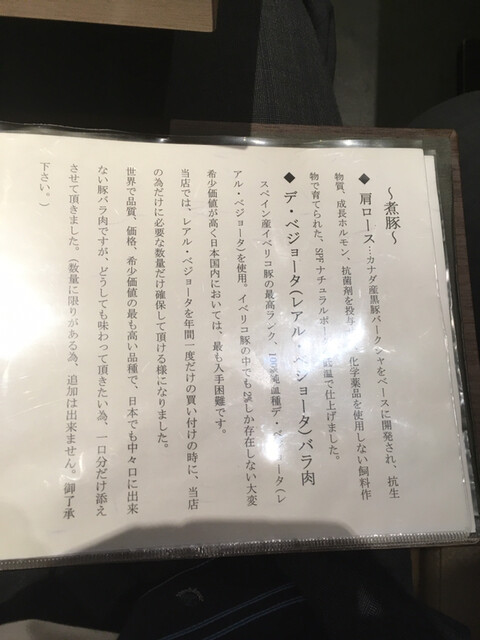 ～煮豚～
◆ 肩ロース…カナダ産黒豚バークシャをベースに開発され、抗生
物質、成長ホルモン、抗菌剤を投与 化学薬品を使用しない飼料作
物で育てられた、SPFナチュラルポー 低温で仕上げました。
◆ デ・ベジョータ(レアル・ベジョータ)バラ肉
スペイン産イベリコ豚の最高ランク、100%純血種デ・ベジョータ(レ
アル・ベジョータ)を使用。イベリコ豚の中でも2%しか存在しない大変
希少価値が高く日本国内においては、最も入手困難です。
当店では、レアル・ベジョータを年間一度だけの買い付けの時に、当店
の為だけに必要な数量だけ確保して頂ける様になりました。
世界で品質、価格、希少価値の最も高い品種で、日本でも中々口に出来
ない豚バラ肉ですが、どうしても味わって頂きたい為、一口分だけ添え
させて頂きました。(数量に限りがある為、追加は出来ません。御了承
下さい。)